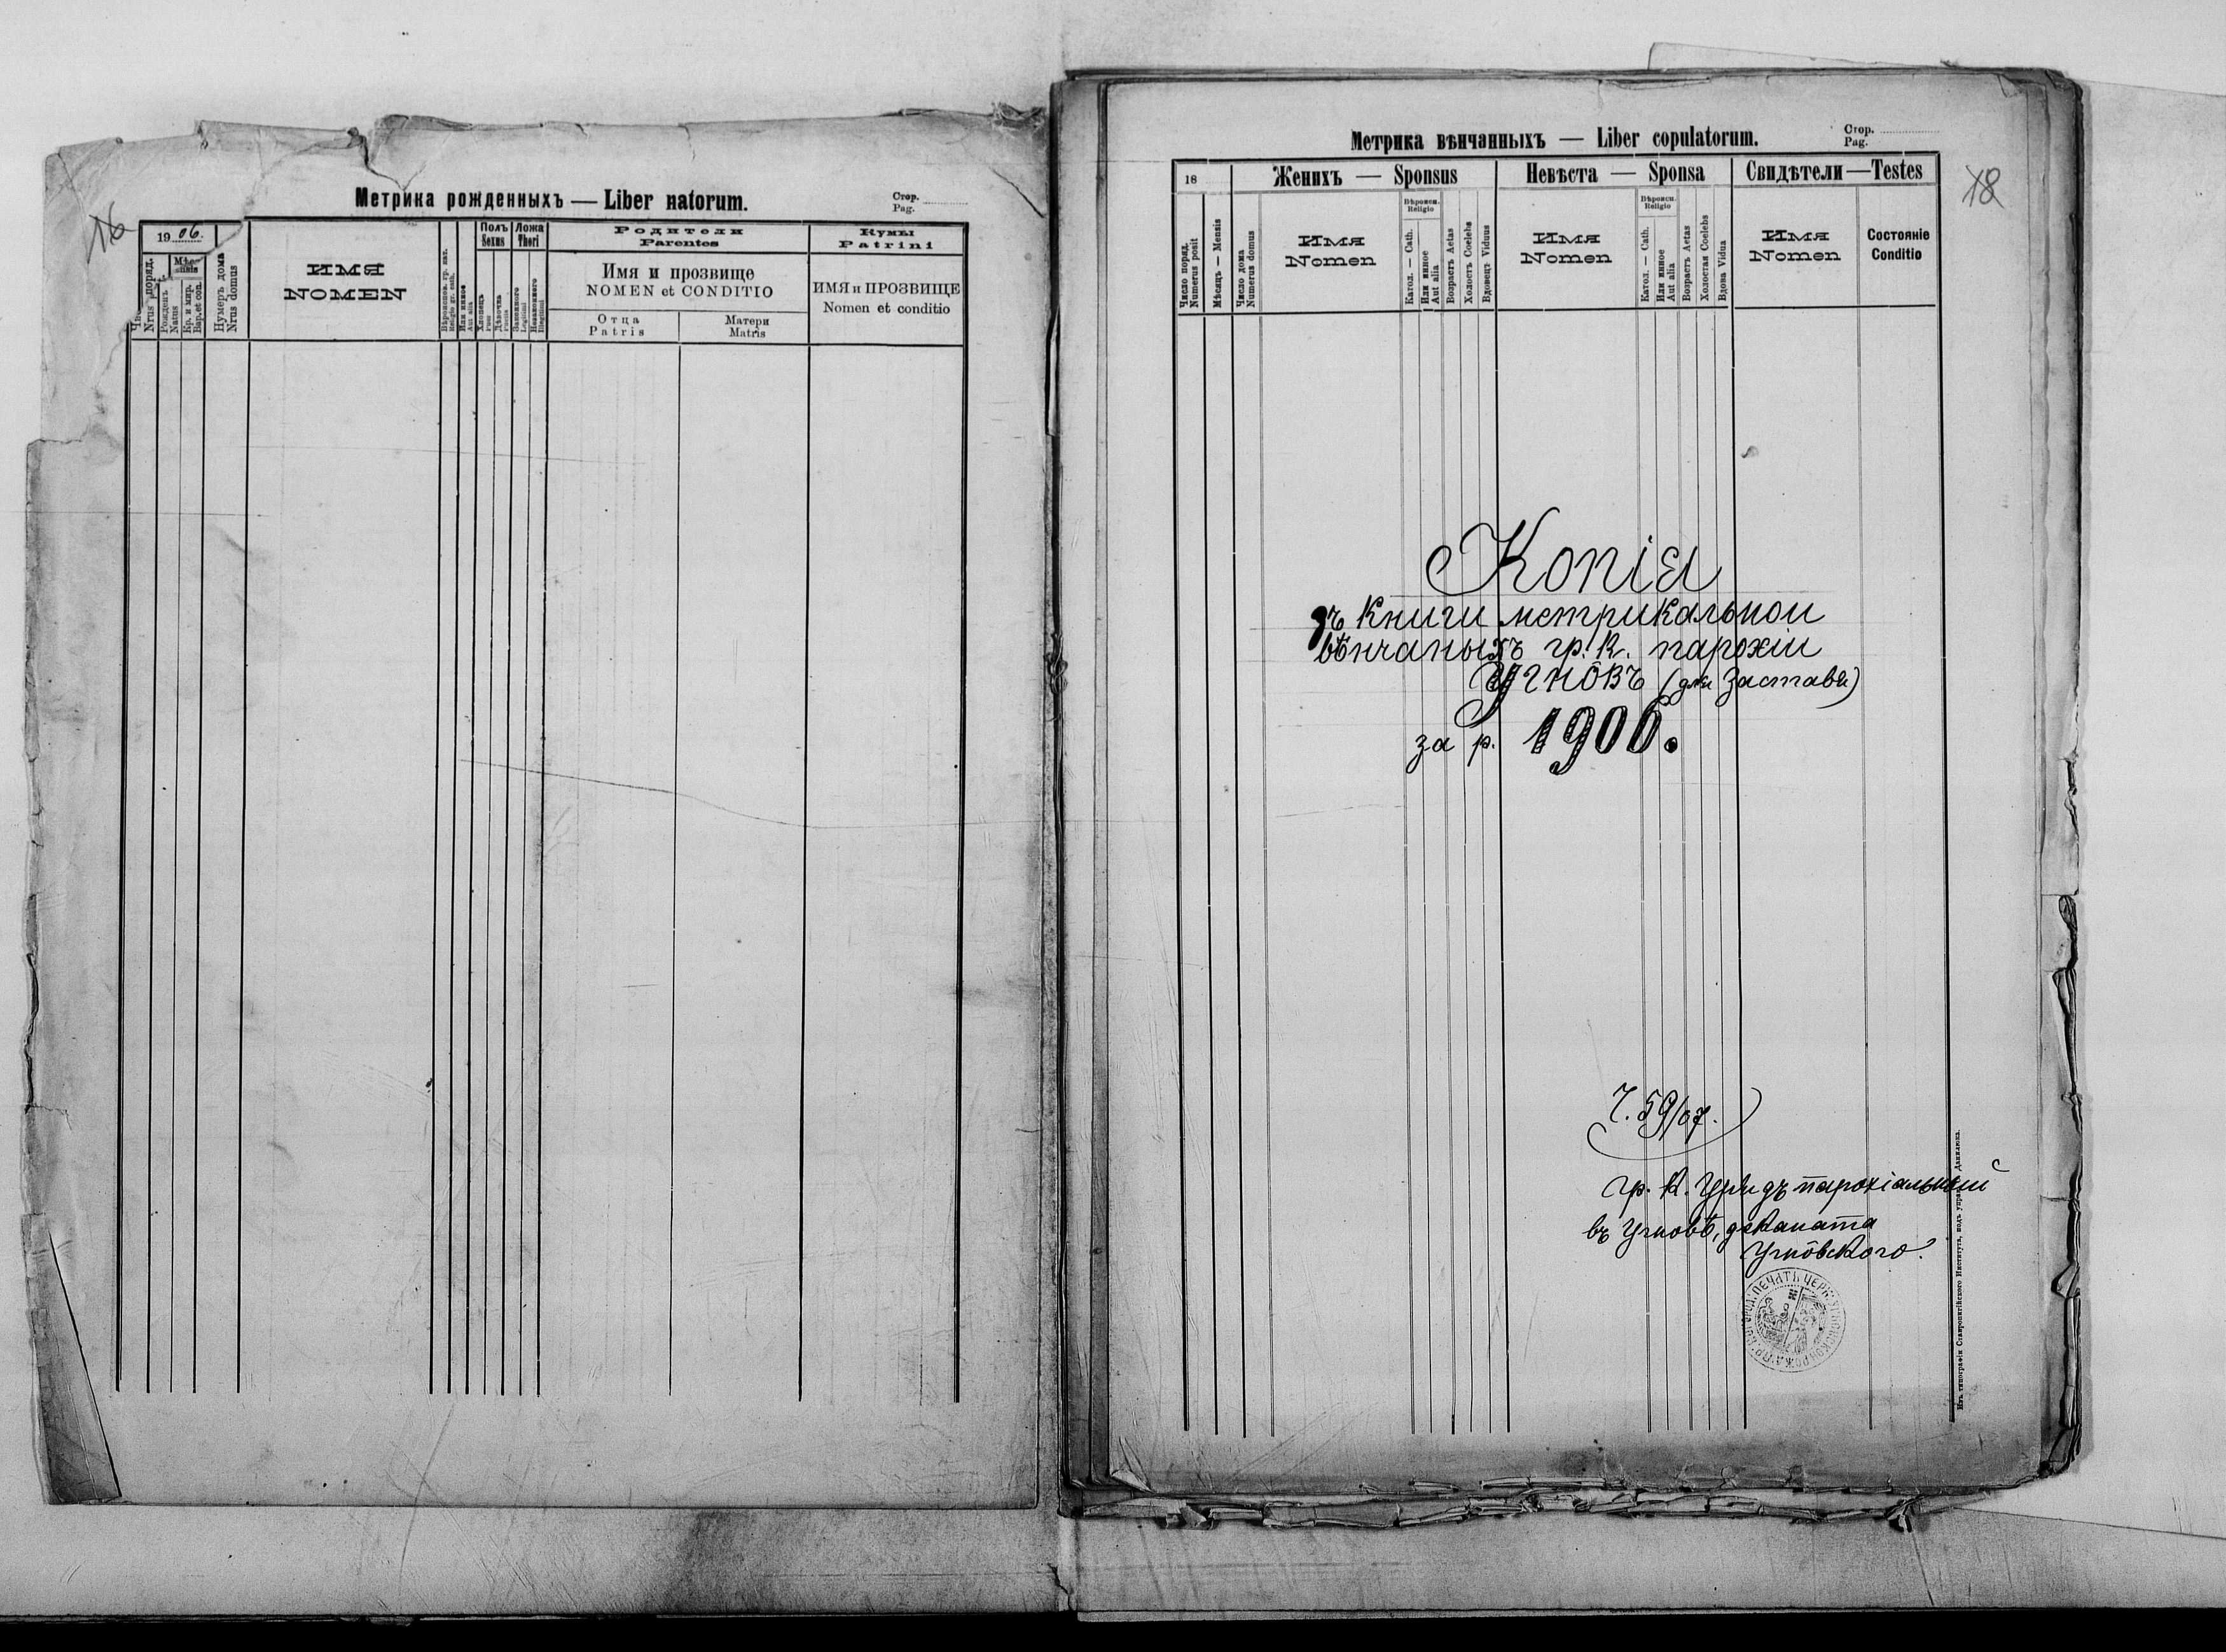 Метрика рожденныхъ — Liber natorum.
Стор.
Pag.
16
19 06.
Нумеръ дома
Nrus domus
Рожденъ
Natus
Кр. и мир.
Bap. et con.
ИМЯ
NOMEN
Или инное
Aut alia
Полъ
Sexus
Ложа
Thori
Родители
Parentes
Имя и прозвище
NOMEN et CONDITIO
Отца
Patris
Матери
Matris
Кумы
Patrini
ИМЯ и ПРОЗВИЩЕ
Nomen et conditio
Метрика вѣнчанныхъ — Liber copulatorum.
Стор.
Pag.
18
18
Число поряд.
Numerus posit
Мѣсяцъ — Mensis
Число дома
Numerus domus
Женихъ — Sponsus
Имя
Nomen
Вѣроисп.
Religio
Катол. — Cath.
Или инное
Aut alia
Возрастъ Aetas
Холостъ Coelebs
Вдовецъ Viduus
Невѣста — Sponsa
Имя
Nomen
Вѣроисп.
Religio
Катол. — Cath.
Или инное
Aut alia
Возрастъ Aetas
Холостая Coelebs
Вдова Vidua
Свидѣтели — Testes
Имя
Nomen
Состояніе
Conditio
Копія
зъ книги метрикальнои
вѣнчаныхъ гр. к. парохіи
Угнôвъ (для Заставя)
за р. 1906.
Ч. 59/07.
Гр. к. Урядъ парохіальный
въ Угновѣ, деканата
Угнôвского.
Изъ типографіи Ставропигійского Института, подъ управ. Данилюка.